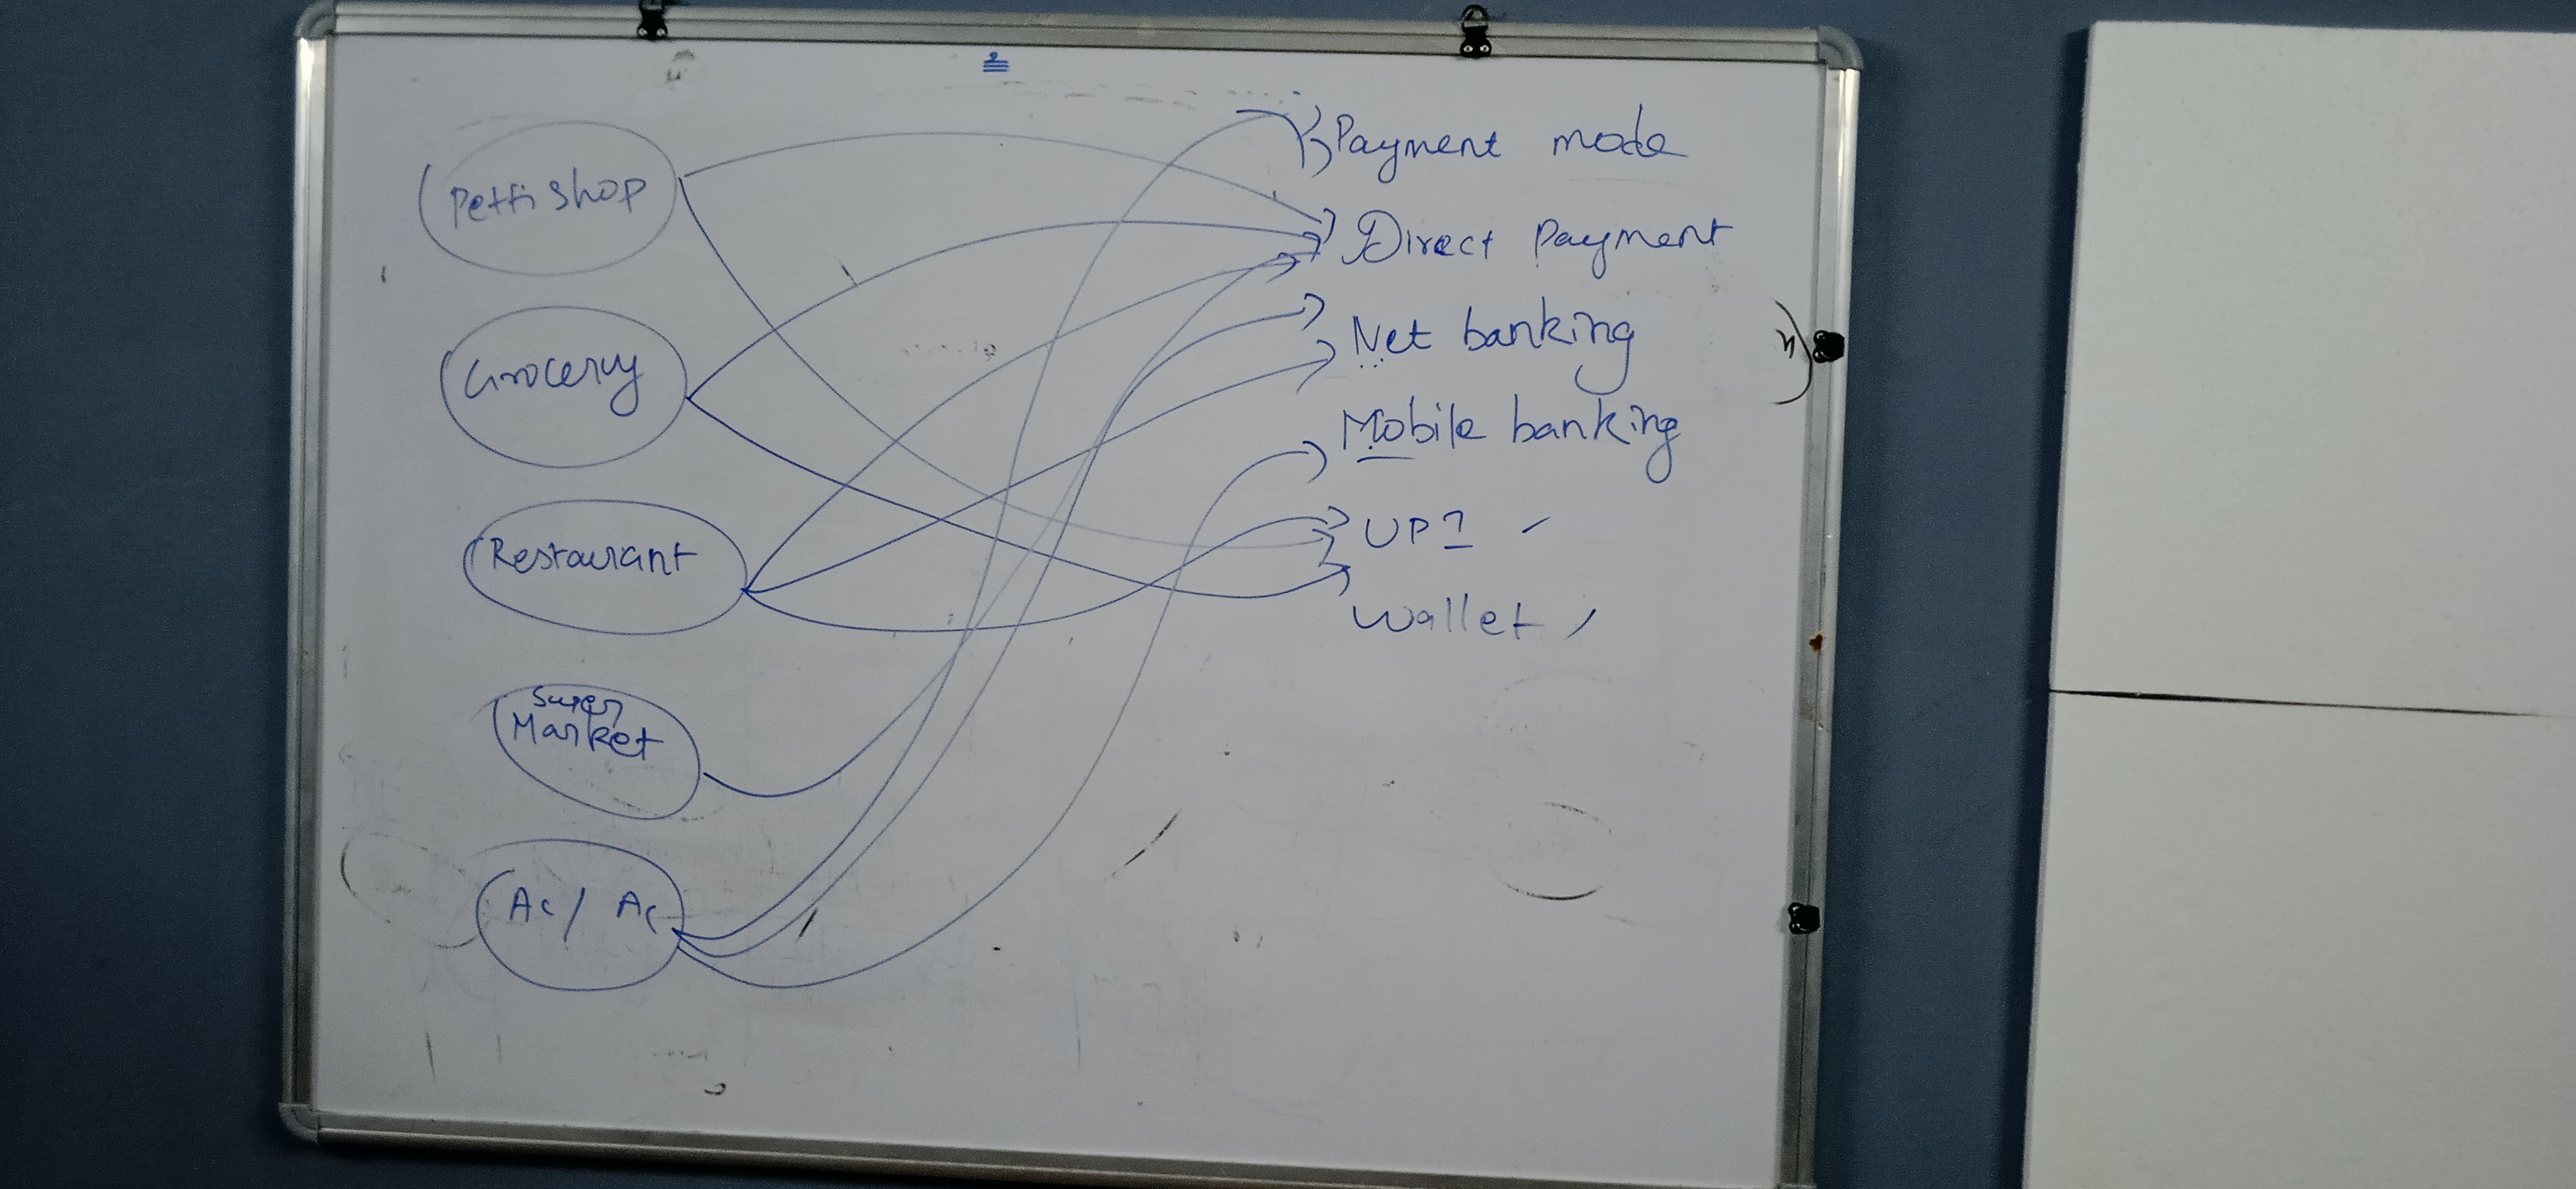 Petti shop
Grocery
Restaurant
Super
Market
Ac / Ac
Payment mode
Direct Payment
Net banking
Mobile banking
UPI
Wallet